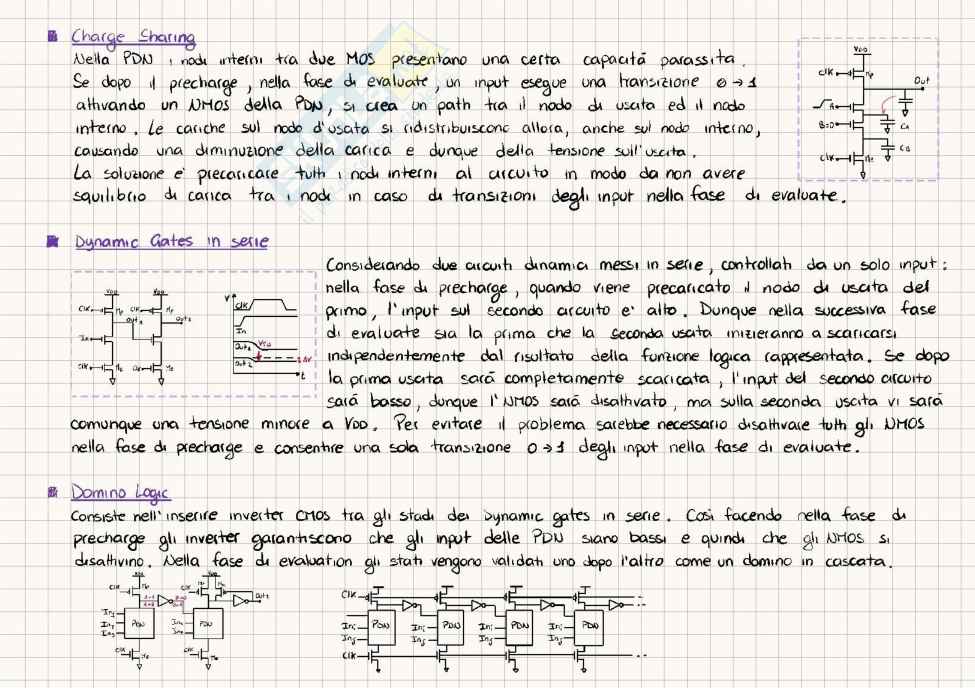 Charge Sharing
Nella PDN i nodi interni tra due MOS presentano una certa capacità parassita.
Se dopo il precharge, nella fase di evaluate, un input esegue una transizione 0→1
attivando un NMOS della PDN, si crea un path tra il nodo di uscita ed il nodo
interno. Le cariche sul nodo d'uscita si ridistribuiscono allora, anche sul nodo interno,
causando una diminuzione della carica e dunque della tensione sull'uscita.
La soluzione è precaricare tutti i nodi interni al circuito in modo da non avere
squilibrio di carica tra i nodi in caso di transizioni degli input nella fase di evaluate.
VDD
Clk
Mp
Out
A
B=0
CA
CB
Clk
Me
Dynamic Gates in serie
Considerando due circuiti dinamici messi in serie, controllati da un solo input:
nella fase di precharge, quando viene precaricato il nodo di uscita del
primo, l'input sul secondo circuito è alto. Dunque nella successiva fase
di evaluate sia la prima che la seconda uscita inizieranno a scaricarsi
indipendentemente dal risultato della funzione logica rappresentata. Se dopo
la prima uscita sarà completamente scaricata, l'input del secondo circuito
sarà basso, dunque l'NMOS sarà disattivato, ma sulla seconda uscita vi sarà
comunque una tensione minore a VDD. Per evitare il problema sarebbe necessario disattivare tutti gli NMOS
nella fase di precharge e consentire una sola transizione 0→1 degli input nella fase di evaluate.
VDD VDD
Clk Mp Clk Mp
Out1 Out2
In
Clk Me Clk Me
V
Clk
In
Out1 VTn
Out2 ΔV
t
Domino Logic
Consiste nell'inserire inverter CMOS tra gli stadi dei Dynamic gates in serie. Così facendo nella fase di
precharge gli inverter garantiscono che gli input delle PDN siano bassi e quindi che gli NMOS si
disattivino. Nella fase di evaluation gli stati vengono validati uno dopo l'altro come un domino in cascata.
VDD VDD
Clk Mp Clk
Out2
In1 PDN PDN
In2
In3
Clk Me Clk Me
Clk
Ini PDN Ini PDN Ini PDN Ini PDN
Inj Inj Inj Inj
Clk